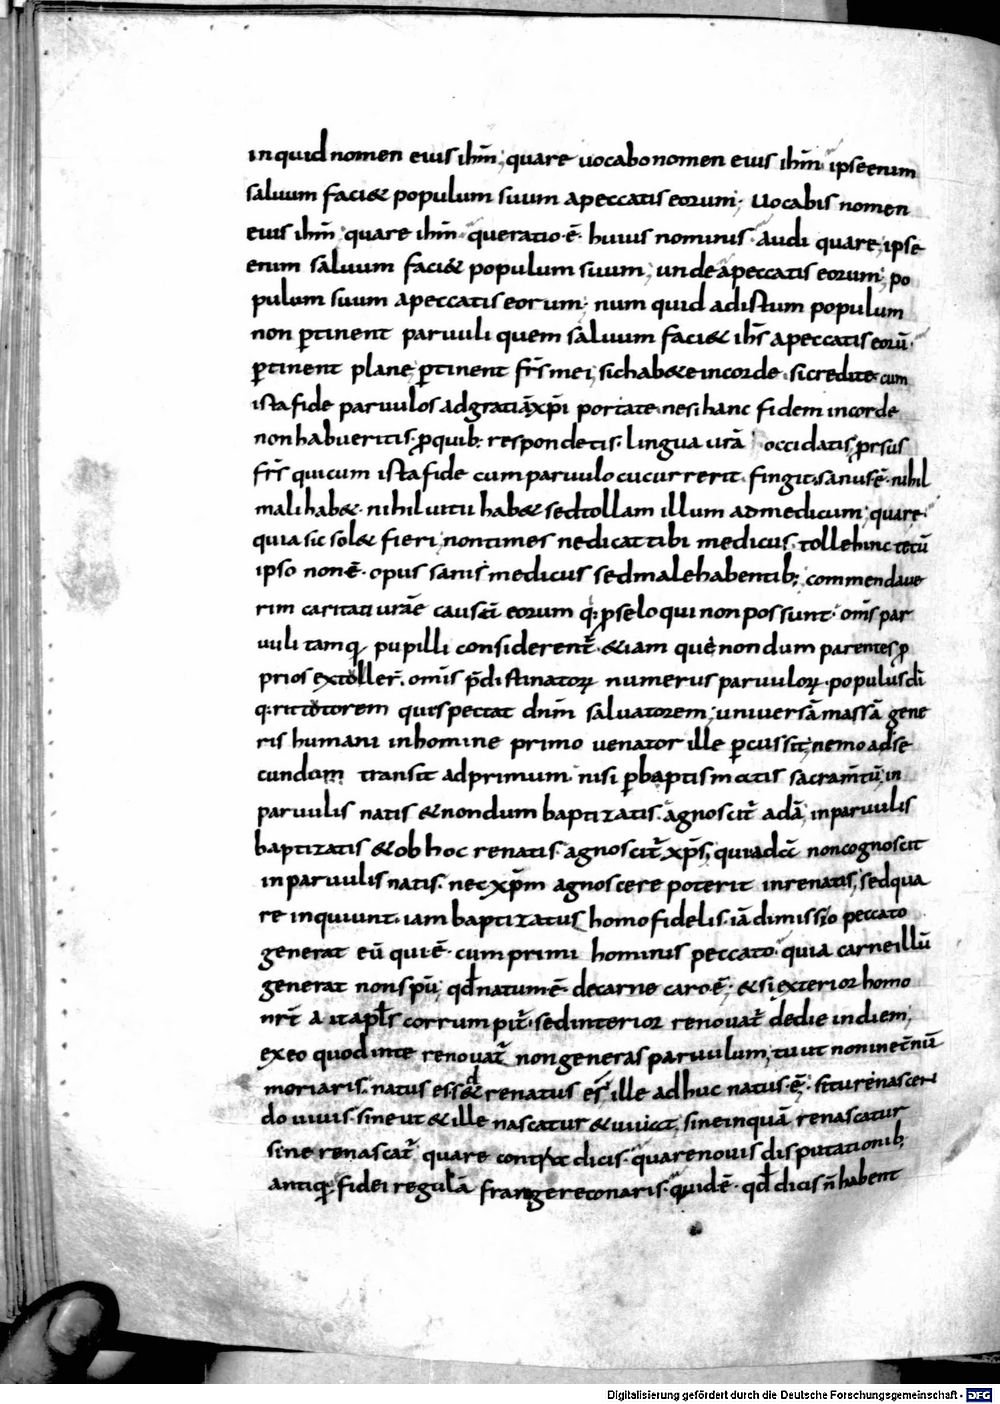 inquid nomen eius ihm̄; quare uocabo nomen eius ihm̄ ipse enim
saluum faci& populum suum apeccatis eorum; Uocabis nomen
eius ihm̄ quare ihm̄ queratio ē huius nominis audi quare; ipse
enim saluum faci& populum suum; unde apeccatis eorum; po
pulum suum apeccatis eorum; num quid adistum populum
non ptinent paruuli quem saluum faci& ihs̄ apeccatis eorū·
ptinent plane; ptinent frs̄ mei; sic hab&e incorde sic credite cum
ista fide paruulos ad gratiā xpī portate nesi hanc fidem in corde
non habueritis pquib: respondetis lingua urā occidatis prsus
frs̄ qui cum ista fide cum paruulo cucurrerit fingit sanus ē nihil
mali hab& nihil uitii hab& sed tollam illum ad medicum; quare
quia sic sol& fieri; non times nedicat tibi medicus tolle hinc
ipso non ē· opus sanis medicus sed male habentib; commendaue
rim caritati urae causā eorum q: pse loqui non possunt· oms̄ par
uuli tamq pupilli considerent̄ &iam que nondum parentes p
prios extoller̄. omīs pdistinatorum numerus paruulorum populus dī
q:rit tutorem qui spectat dnm̄ saluatorem; uniuersā massā gene
ris humani inhomine primo uenator ille pcussit; nemo adse
cundum transit ad primum nisi pbaptismatis sacram̄tū; in
paruulis natis & nondum baptizatis agnoscit̄ adā; in paruulis
baptizatis & ob hoc renatis agnoscit̄ xps̄; non cognoscit
in paruulis natis. nec xpm̄ agnoscere poterit in renatis; sed qua
re inquiunt iam baptizatus homo fidelis iā dimisso peccato
generat eū qui ē cum primi hominis peccato quia carne illū
generat non spū; qd natum ē de carne caro ē; & si exterior homo
nr̄ ait apls̄ corrumpit̄ sed interior renouat̄ de die in diem;
ex eo quod inte renouat̄ non generas paruulum; tu ut non in et̄nū
moriaris natus es sed & renatus es ille ad huc natus ē; si tu renascen
do uiuis sine ut & ille nascatur & uiuat; sine inquā renascatur
sine renascat̄ quare contra dicis quare nouis disputationib;
antiq fidei regulā frangere conaris quid ē qd dicis n̄ habent
Digitalisierung gefördert durch die Deutsche Forschungsgemeinschaft - DFG